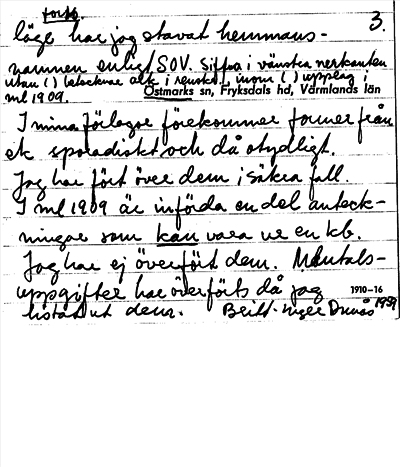 forts. 3.
läge har jag stavat hemmans-
namnen enligt SOV. Siffra i vänstra nerkanten
utan ( ) betecknar i inom ( ) upplag i
ml 1909. Östmarks sn, Fryksdals hd, Värmlands län
I mina förlagor förekommer former från
ek sporadiskt och då otydligt.
Jag har fört över dem i säkra fall.
I ml 1909 är införda en del anteck-
ningar som kan vara ur en kb.
Jag har ej överfört dem. Mantals-
uppgifter har överförts då jag 1910-16
listat ut dem. Britt-Inger 1989